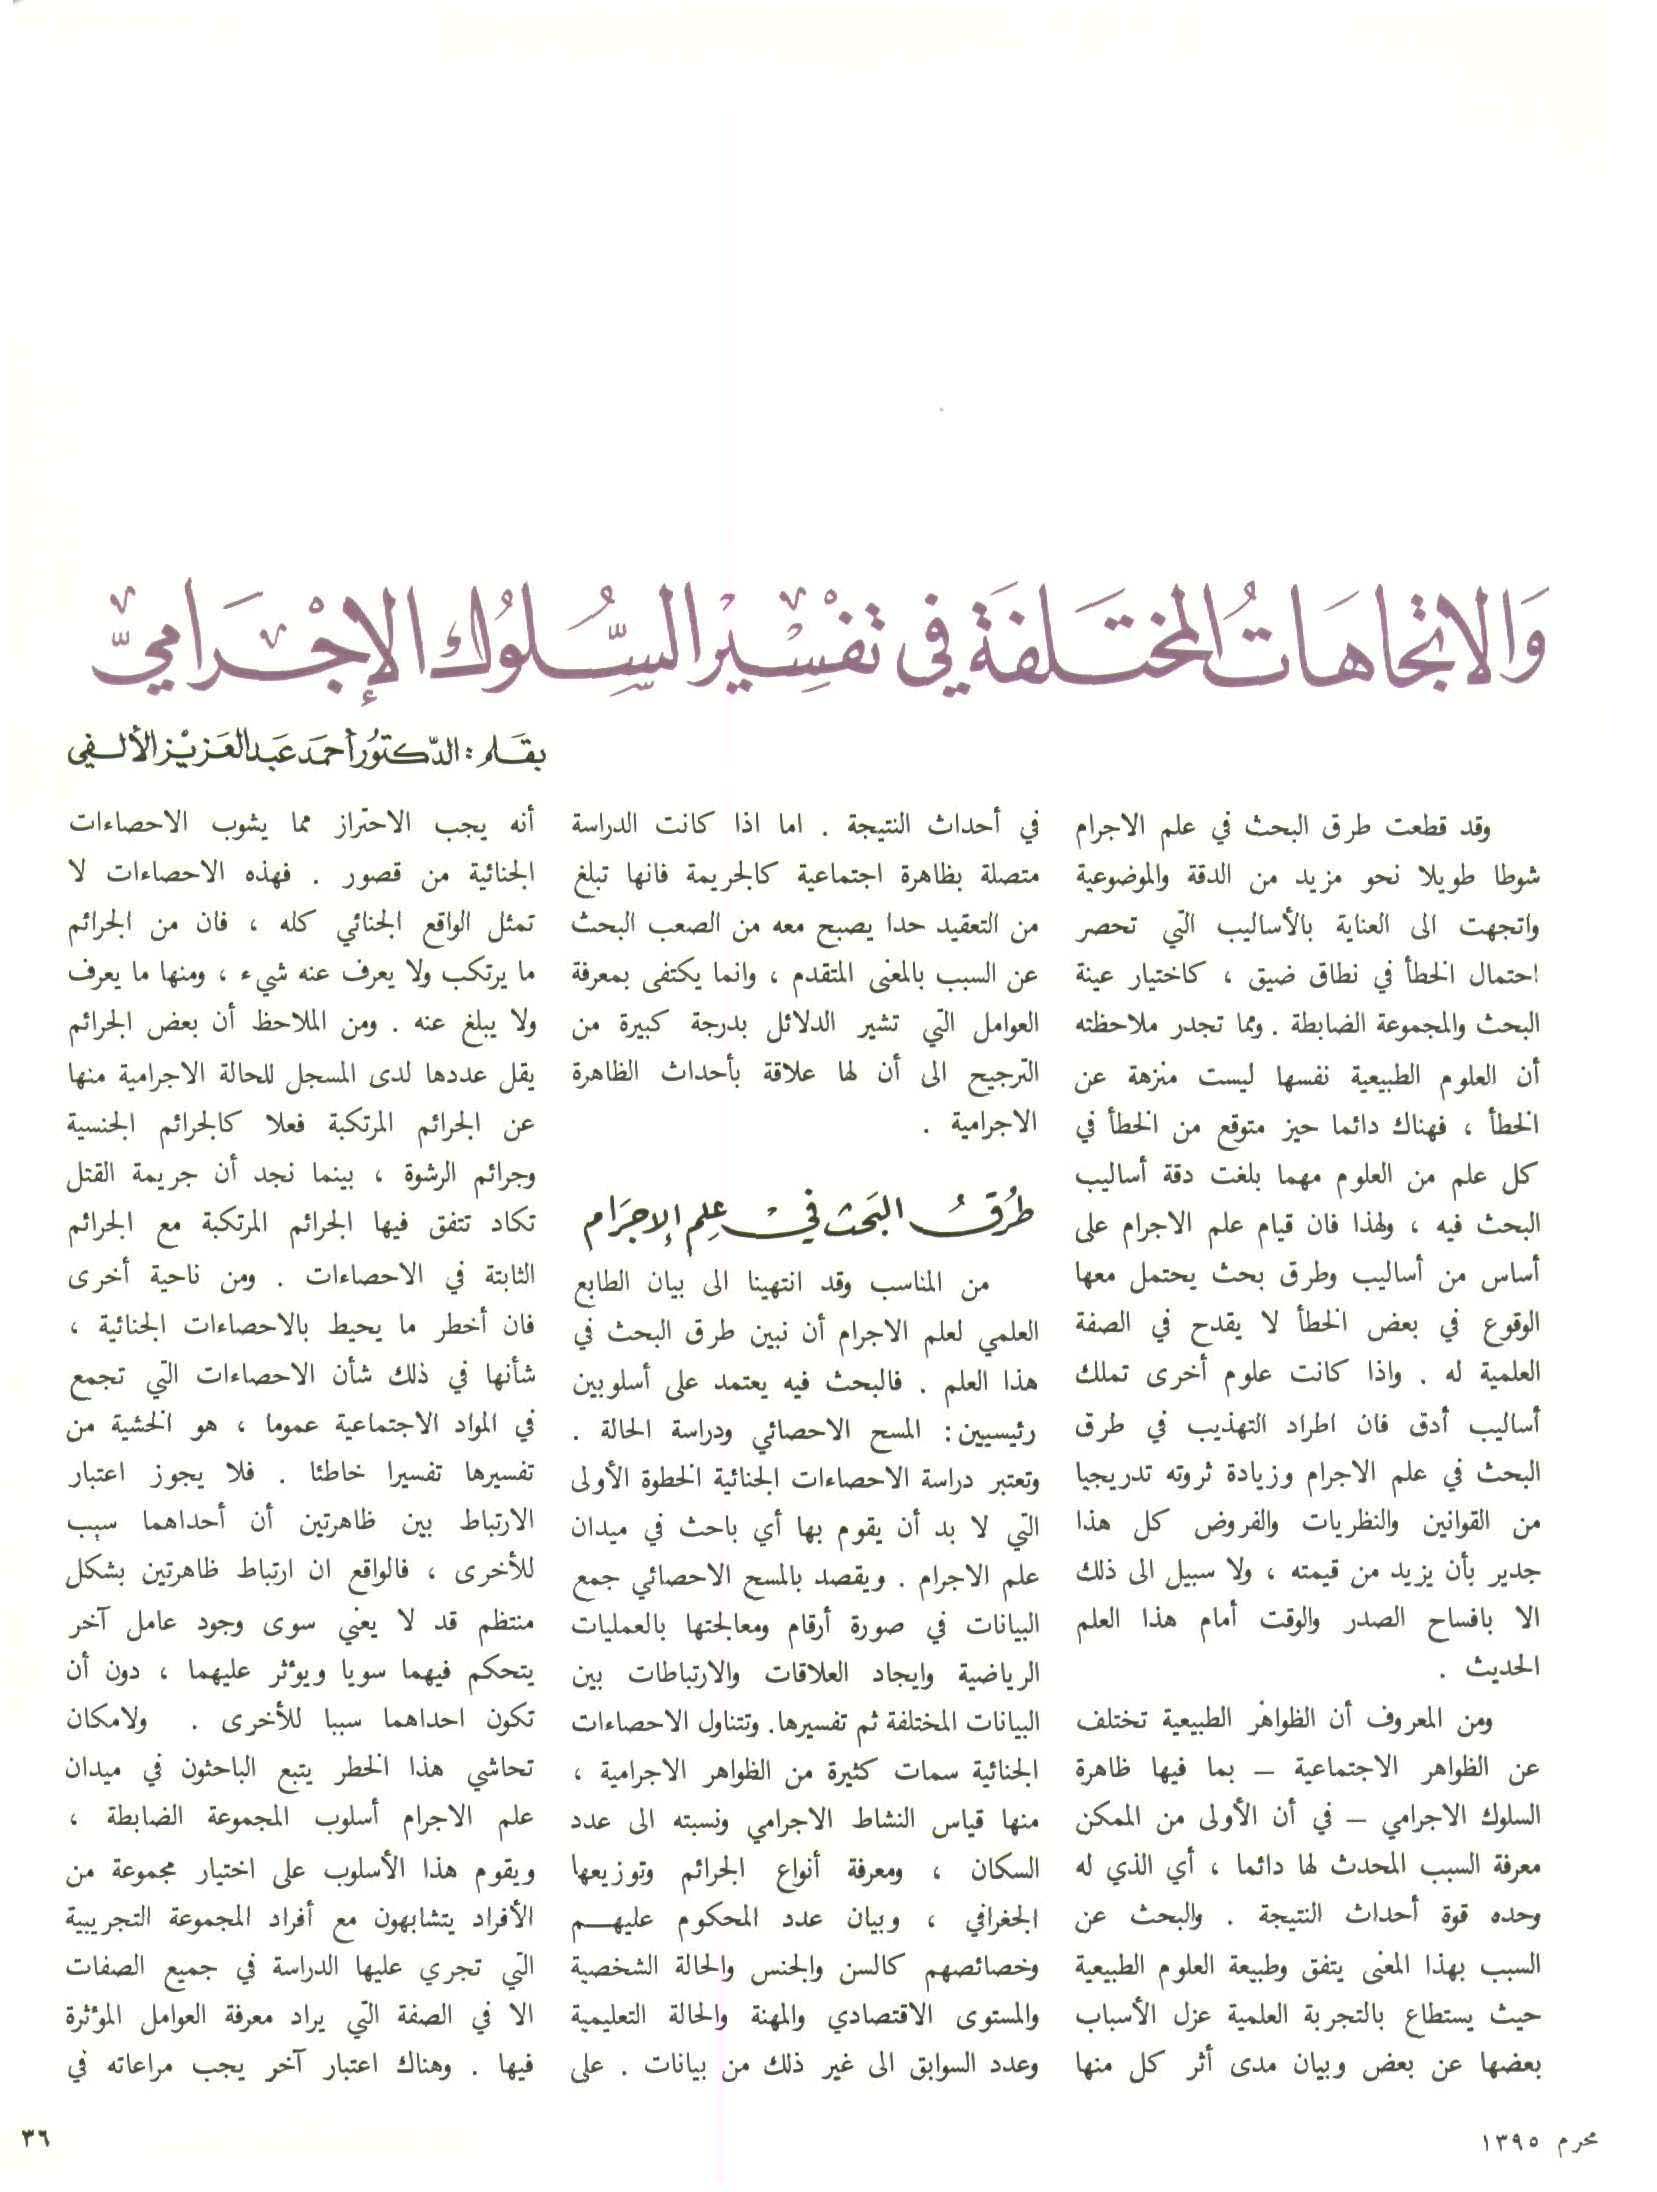 وَالاتجاهَاتُ المختَلفَة في تفْسِيْر السُّلوُك الإجْرَامِيّ
بقَلم : الدّكتوُر أحمَد عَبد العَزيْز الألفي
وقد قطعت طرق البحث في علم الاجرام
شوطا طويلا نحو مزيد من الدقة والموضوعية
واتجهت الى العناية بالأساليب التي تحصر
احتمال الخطأ في نطاق ضيق ، كاختيار عينة
البحث والمجموعة الضابطة . ومما تجدر ملاحظته
أن العلوم الطبيعية نفسها ليست منزهة عن
الخطأ ، فهناك دائما حيز متوقع من الخطأ في
كل علم من العلوم مهما بلغت دقة أساليب
البحث فيه ، ولهذا فان قيام علم الاجرام على
أساس من أساليب وطرق بحث يحتمل معها
الوقوع في بعض الخطأ لا يقدح في الصفة
العلمية له . واذا كانت علوم أخرى تملك
أساليب أدق فان اطراد التهذيب في طرق
البحث في علم الاجرام وزيادة ثروته تدريجيا
من القوانين والنظريات والفروض كل هذا
جدير بأن يزيد من قيمته ، ولا سبيل الى ذلك
الا بافساح الصدر والوقت أمام هذا العلم
الحديث .
ومن المعروف أن الظواهر الطبيعية تختلف
عن الظواهر الاجتماعية – بما فيها ظاهرة
السلوك الاجرامي – في أن الأولى من الممكن
معرفة السبب المحدث لها دائما ، أي الذي له
وحده قوة أحداث النتيجة . والبحث عن
السبب بهذا المعنى يتفق وطبيعة العلوم الطبيعية
حيث يستطاع بالتجربة العلمية عزل الأسباب
بعضها عن بعض وبيان مدى أثر كل منها
في أحداث النتيجة . اما اذا كانت الدراسة
متصلة بظاهرة اجتماعية كالجريمة فانها تبلغ
من التعقيد حدا يصبح معه من الصعب البحث
عن السبب بالمعنى المتقدم ، وانما يكتفى بمعرفة
العوامل التي تشير الدلائل بدرجة كبيرة من
الترجيح الى أن لها علاقة بأحداث الظاهرة
الاجرامية .
طُرُقُ البَحث فيْ عِلم الإجرَام
من المناسب وقد انتهينا الى بيان الطابع
العلمي لعلم الاجرام أن نبين طرق البحث في
هذا العلم . فالبحث فيه يعتمد على أسلوبين
رئيسيين : المسح الاحصائي ودراسة الحالة .
وتعتبر دراسة الاحصاءات الجنائية الخطوة الأولى
التي لا بد أن يقوم بها أي باحث في ميدان
علم الاجرام . ويقصد بالمسح الاحصائي جمع
البيانات في صورة أرقام ومعالجتها بالعمليات
الرياضية وايجاد العلاقات والارتباطات بين
البيانات المختلفة ثم تفسيرها. وتتناول الاحصاءات
الجنائية سمات كثيرة من الظواهر الاجرامية ،
منها قياس النشاط الاجرامي ونسبته الى عدد
السكان ، ومعرفة أنواع الجرائم وتوزيعها
الجغرافي ، وبيان عدد المحكوم عليهــم
وخصائصهم كالسن والجنس والحالة الشخصية
والمستوى الاقتصادي والمهنة والحالة التعليمية
وعدد السوابق الى غير ذلك من بيانات . على
أنه يجب الاحتراز مما يشوب الاحصاءات
الجنائية من قصور . فهذه الاحصاءات لا
تمثل الواقع الجنائي كله ، فان من الجرائم
ما يرتكب ولا يعرف عنه شيء ، ومنها ما يعرف
ولا يبلغ عنه . ومن الملاحظ أن بعض الجرائم
يقل عددها لدى المسجل للحالة الاجرامية منها
عن الجرائم المرتكبة فعلا كالجرائم الجنسية
وجرائم الرشوة ، بينما نجد أن جريمة القتل
تكاد تتفق فيها الجرائم المرتكبة مع الجرائم
الثابتة في الاحصاءات . ومن ناحية أخرى
فان أخطر ما يحيط بالاحصاءات الجنائية ،
شأنها في ذلك شأن الاحصاءات التي تجمع
في المواد الاجتماعية عموما ، هو الخشية من
تفسيرها تفسيرا خاطئا . فلا يجوز اعتبار
الارتباط بين ظاهرتين أن أحداهما سبب
للأخرى ، فالواقع ان ارتباط ظاهرتين بشكل
منتظم قد لا يعني سوى وجود عامل آخر
يتحكم فيهما سويا ويؤثر عليهما ، دون أن
تكون احداهما سببا للأخرى . ولامكان
تحاشي هذا الخطر يتبع الباحثون في ميدان
علم الاجرام أسلوب المجموعة الضابطة ،
ويقوم هذا الأسلوب على اختيار مجموعة من
الأفراد يتشابهون مع أفراد المجموعة التجريبية
التي تجري عليها الدراسة في جميع الصفات
الا في الصفة التي يراد معرفة العوامل المؤثرة
فيها . وهناك اعتبار آخر يجب مراعاته في
محرم ١٣٩٥
٣٦